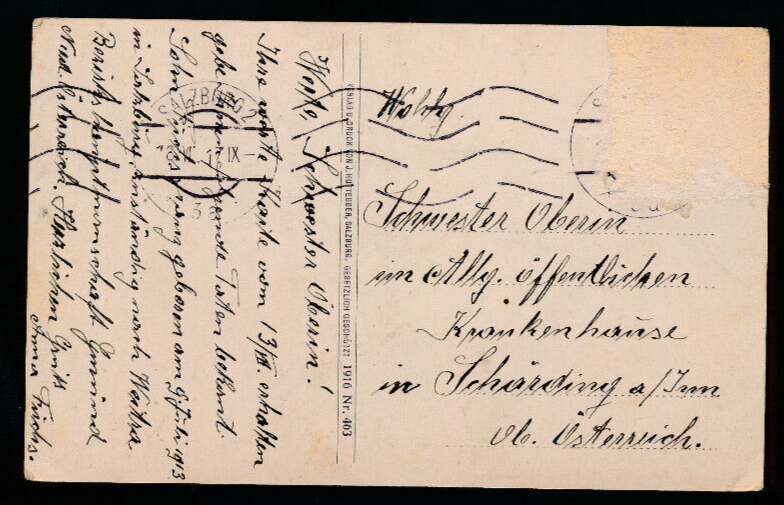 Werte, Schwester Oberin!
Ihre werte Karte vom 13/VII. erhalten
gebe Ihnen folgende Daten bekannt.
Sohn Alois Jung geboren am 9 Juli 1913
in Salzburg zuständig nach Weitra
Bezirkshauptmannschaft Gmünd
Nied. Österreich. Herzlichen Gruß
Anna Fuchs.
SALZBURG 2
VERLAG U. DRUCK VON J. HUTTEGGER, SALZBURG. GESETZLICH GESCHÜTZT. 1916 Nr. 463
Wohlg.
Schwester Oberin
im Allg. öffentlichen
Krankenhause
in Schärding a/Inn
Ob. Österreich.